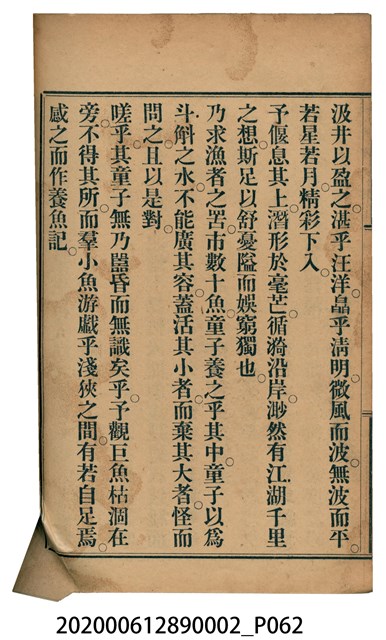 汲井以盈之湛乎汪洋晶乎清明微風而波無波而平
若星若月精彩下入
予偃息其上潛形於毫芒循漪沿岸渺然有江湖千里
之想斯足以舒憂隘而娛窮獨也
乃求漁者之罟市數十魚童子養之乎其中童子以為
斗斛之水不能廣其容蓋活其小者而棄其大者怪而
問之且以是對
嗟乎其童子無乃嚚昏而無識矣乎予觀巨魚枯涸在
旁不得其所而羣小魚游戲乎淺狹之間有若自足焉
感之而作養魚記
202000612890002_P062